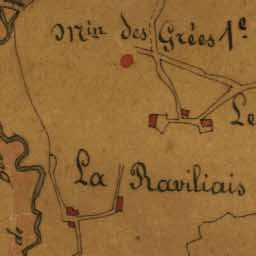 Min des Grées 1e
Le
La Raviliais
de